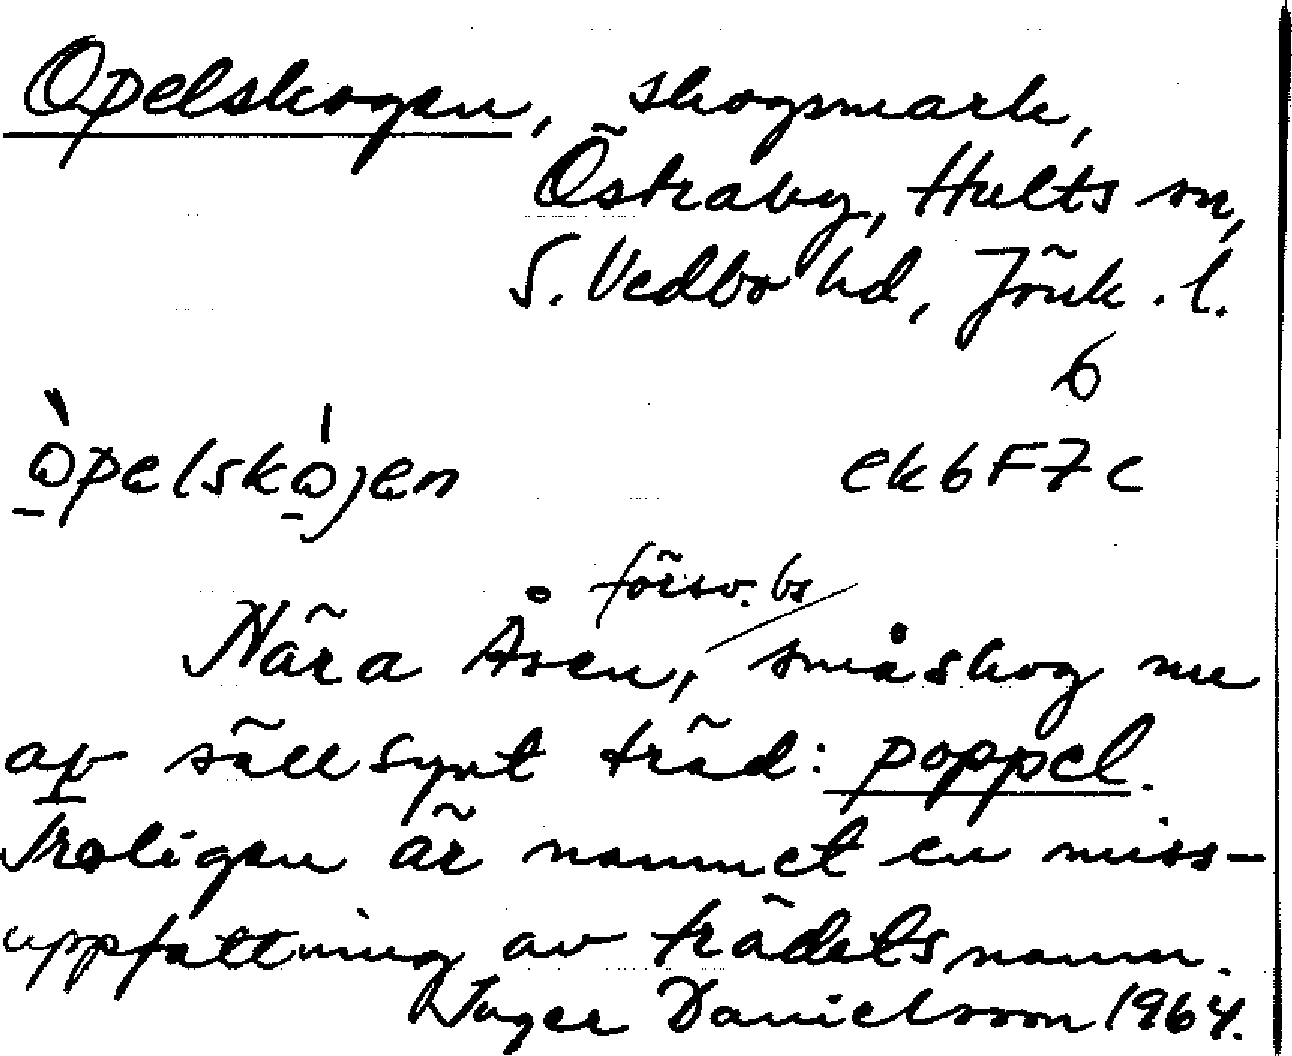 Opelskogen, skogsmark,
Östraby, Hults sn,
S. Vedbo hd, Jönk. l.
6
òpelskójen ek6F7c
försv. bs
Nära Åsen, småskog me
av sällsynt träd: poppel.
Troligen är namnet en miss-
uppfattning av trädets namn.
Inger Danielsson 1964.